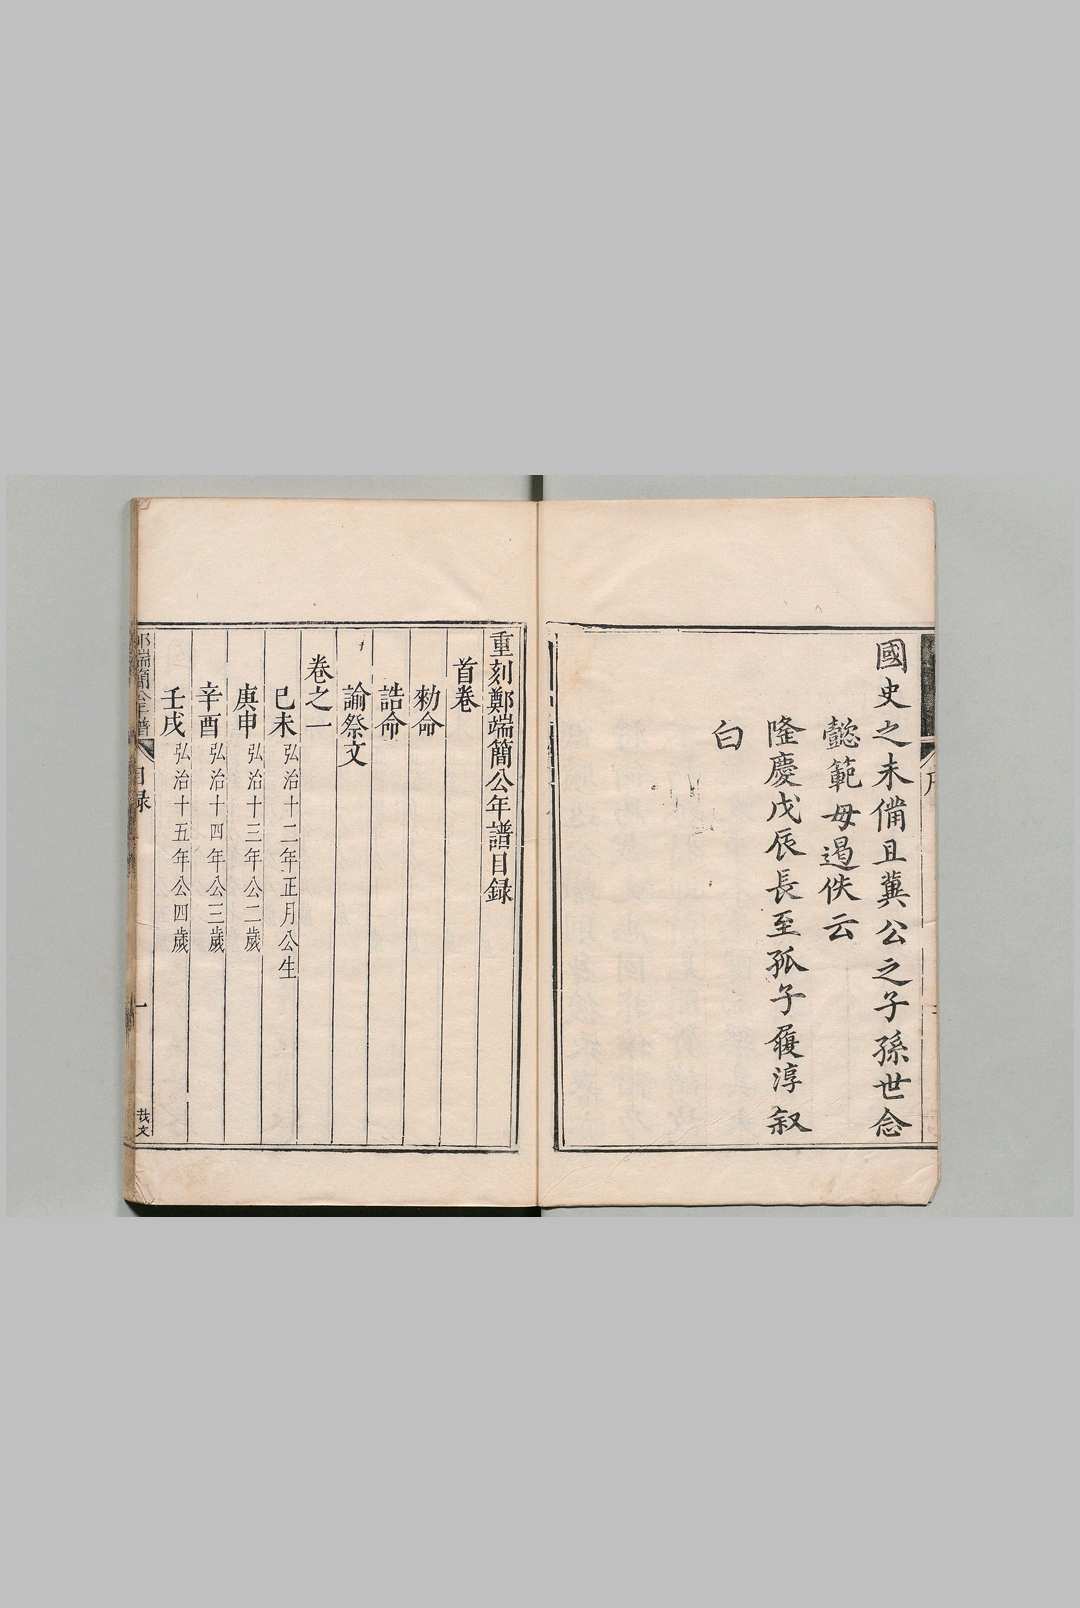 國史之未備且冀公之子孫世念
懿範毋遏佚云
隆慶戊辰長至孤子履淳叙
白
重刻鄭端簡公年譜目録
首卷
勑命
誥命
諭祭文
卷之一
己未 弘治十二年正月公生
庚申 弘治十三年公二歲
辛酉 弘治十四年公三歲
壬戌 弘治十五年公四歲
鄭端簡公年譜 目録 一